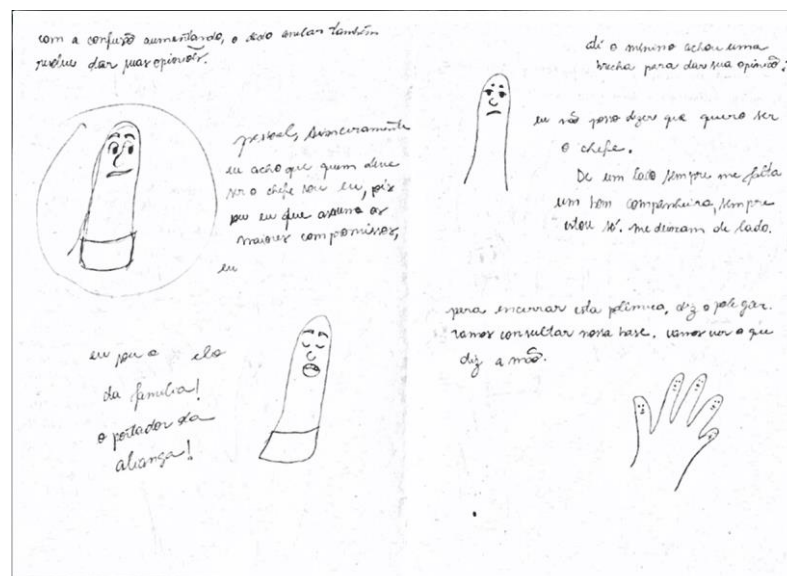 com a confusão aumentando, o dedo anelar também
resolve dar suas opiniões.
pessoal, sinceramente
eu acho que quem deve
ser o chefe sou eu, pois
sou eu que assumo os
maiores compromissos,
eu
eu sou o elo
da família!
o portador da
aliança!
ali o mínimo achou uma
brecha para dar sua opinião:
eu não posso dizer que quero ser
o chefe.
De um lado sempre me falta
um bom companheiro, sempre
estou só. me deixam de lado.
para encerrar esta polêmica, diz o polegar.
vamos consultar nossa base. vamos ver o que
diz a mão.